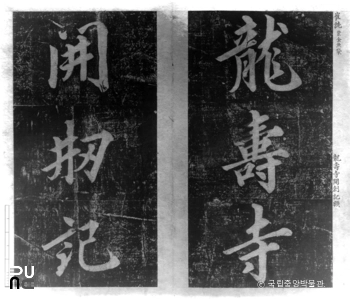 龍壽寺
開刱記
© 국립중앙박물관